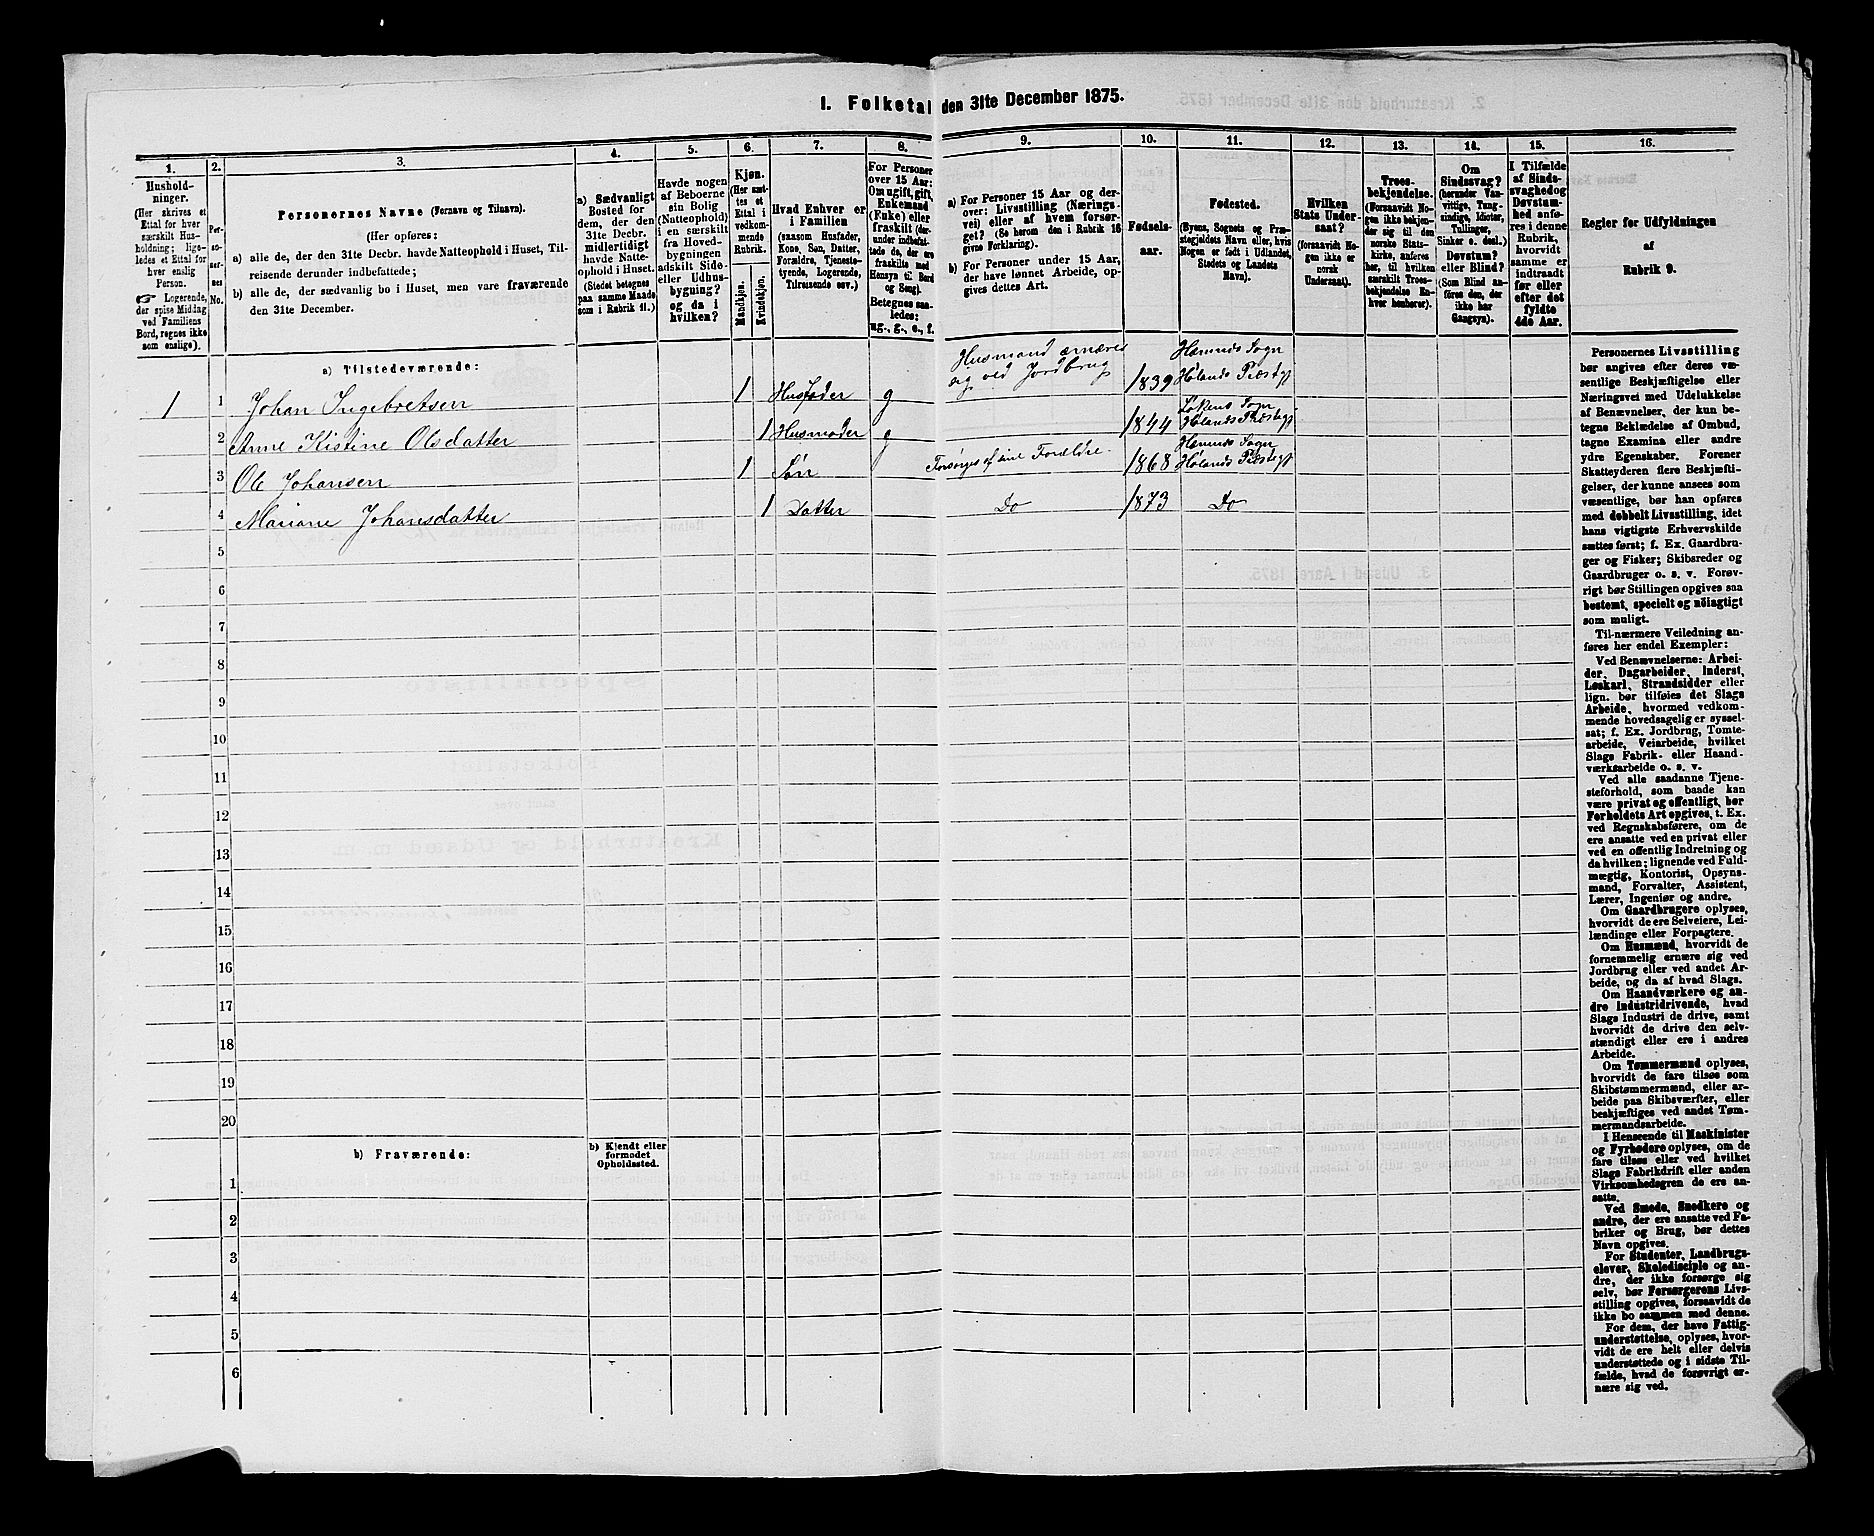 I. Folketal den 31te December 1875.
1.
Hushold-
ninger.
(Her skrives et
Ettal for hver
særskilt Hus-
holdning; lige-
ledes et Ettal for
hver enslig
Person.
☞ Logerende,
der spise Middag
ved Familiens
Bord, regnes ikke
som enslige).
2.
Per-
so-
ner-
nes
No.
3.
Personernes Navne (Fornavn og Tilnavn).
(Her opføres:
a) alle de, der den 31te Decbr. havde Natteophold i Huset, Til-
reisende derunder indbefattede;
b) alle de, der sædvanlig bo i Huset, men vare fraværende
den 31te December.
4.
a) Sædvanligt
Bosted for
dem, der den
31te Decbr.
midlertidigt
havde Natte-
ophold i Huset.
(Stedet betegnes
paa samme Maade
som i Rubrik 11.)
5.
Havde nogen
af Beboerne
sin Bolig
(Natteophold)
i en særskilt
fra Hoved-
bygningen
adskilt Side-
eller Udhus-
bygning?
og da i
hvilken?
6.
Kjøn.
(Her sæt-
tes et
Ettal i
vedkom-
mende
Rubrik.
Mandkjøn.
Kvindekjøn.
7.
Hvad Enhver er
i Familien
(saasom Husfader,
Kone, Søn, Datter,
Forældre, Tjeneste-
tyende, Logerende,
Tilreisende osv.)
8.
For Personer
over 15 Aar:
Om ugift, gift,
Enkemand
(Enke) eller
fraskilt (der-
under indbefat-
tede de, der ere
fraskilte med
Hensyn til Bord
og Seng).
Betegnes saa-
ledes:
ug., g., e., f.
9.
a) For Personer 15 Aar og der-
over: Livsstilling (Nærings-
vei) eller af hvem forsør-
get? (Se herom den i Rubrik 16
givne Forklaring).
b) For Personer under 15 Aar,
der have lønnet Arbeide, op-
gives dettes Art.
10.
Fødsels-
aar.
11.
Fødested.
(Byens, Sognets og Præ-
stegjeldets Navn eller, hvis
Nogen er født i Udlandet,
Stedets og Landets
Navn).
12.
Hvilken
Stats Under-
saat?
(forsaavidt No-
gen ikke er
norsk
Undersaat).
13.
Troes-
bekjendelse.
(Forsaavidt No-
gen ikke bekjen-
der sig til den
norske Stats-
kirke, anføres
her, til hvilken
særskilt Troes-
bekjendelse En-
hver henhører).
14.
Om
Sindssvag?
(herunder Van-
vittige, Tung-
sindige, Idioter,
Tullinger,
Sinker o. desl.)
Døvstum?
eller Blind?
(Som Blind an-
føres den, der
ikke har
Gangsyn).
15.
I Tilfælde
af Sinds-
svaghed og
Døvstum-
hed anfø-
res i denne
Rubrik,
hvorvidt
samme er
indtraadt
før eller
efter det
fyldte
4de Aar.
16.
Regler for Udfyldningen
af
Rubrik 9.
a) Tilstedeværende:
1 1 Johan Ingebretsen 1 Husfader g Husmand ernærer sig ved Jordbrug 1839 Hemnes Sogn Hølands Præstegj
2 Anne Kistine Olsdatter 1 Husmoder g 1844 Løkens Sogn Hølands Præstegj
3 Ole Johansen 1 Søn Forsørges af sine Forældre. 1868 Hemnes Sogn Hølands Præstegj
4 Mariane Johansdatter 1 Datter Do 1873 Do
5
6
7
8
9
10
11
12
13
14
15
16
17
18
19
20
b) Fraværende:
b) Kjendt eller
formodet
Opholdssted.
1
2
3
4
5
6
Personernes Livsstilling
bør angives efter deres væ-
sentlige Beskjæftigelse eller
Næringsvei med Udelukkelse
af Benævnelser, der kun be-
tegne Beklædelse af Ombud,
tagne Examina eller andre
ydre Egenskaber. Forener
Skatteyderen flere Beskjæfti-
gelser, der kunne ansees som
væsentlige, bør han opføres
med dobbelt Livsstilling, idet
hans vigtigste Erhvervskilde
sættes først; f. Ex. Gaardbru-
ger og Fisker; Skibsreder og
Gaardbruger o. s. v. Forøv-
rigt bør Stillingen opgives saa
bestemt, specielt og nöiagtigt
som muligt.
Til-nærmere Veiledning an-
føres her endel Exempler:
Ved Benævnelserne: Arbei-
der, Dagarbeider, Inderst,
Løskarl, Strandsidder eller
lign. bør tilføies det Slags
Arbeide, hvormed vedkom-
mende hovedsagelig er syssel-
sat; f. Ex. Jordbrug, Tomte-
arbeide, Veiarbeide, hvilket
Slags Fabrik- eller Haand-
værksarbeide o. s. v.
Ved alle saadanne Tjene-
steforhold, som baade kan
være privat og offentligt, bør
Forholdets Art opgives, t. Ex.
ved Regnskabsførere, om de
ere ansatte ved en privat eller
ved en offentlig Indretning og
da hvilken; lignende ved Fuld-
mægtig, Kontorist, Opsyns-
mand, Forvalter, Assistent,
Lærer, Ingeniør og andre.
Om Gaardbrugere oplyses,
hvorvidt de ere Selveiere, Lei-
lændinge eller Forpagtere.
Om Husmænd, hvorvidt de
fornemmelig ernære sig ved
Jordbrug eller ved andet Ar-
beide, og da af hvad Slags.
Om Haandværkere og an-
dre Industridrivende, hvad
Slags Industri de drive, samt
hvorvidt de drive den selv-
stændigt eller ere i andres
Arbeide.
Om Tømmermænd oplyses,
hvorvidt de fare tilsøs som
Skibstømmermænd, eller ar-
beide paa Skibsværfter, eller
beskjæftiges ved andet Tøm-
mermandsarbeide.
I Henseende til Maskinister
og Fyrbødere oplyses, om de
fare tilsøs eller ved hvilket
Slags Fabrikdrift eller anden
Virksomhedsgren de ere an-
satte.
Ved Smede, Snedkere og
andre, der ere ansatte ved Fa-
briker og Brug, bør dettes
Navn opgives.
For Studenter, Landbrugs-
elever, Skoledisciple og an-
dre, der ikke forsørge sig
selv, bør Forsørgerens Livs-
stilling opgives, forsaavidt de
ikke bo sammen med denne.
For dem, der have Fattig-
understøttelse, oplyses, hvor-
vidt de ere helt eller delvis
understøttede og i sidste Til-
fælde, hvad de forøvrigt er-
nære sig ved.